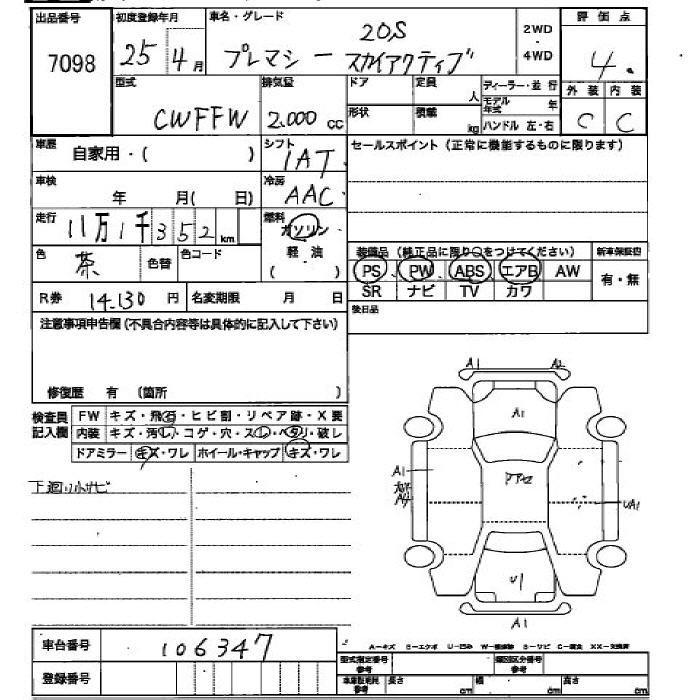 出品番号 初度登録年月 車名・グレード 評価点
7098 25年4月 プレマシー 20S スカイアクティブ 2WD・4WD 4.
型式 排気量 ドア 定員 人 ディーラー・並行 外装 内装
CWFFW 2.000cc 形状 積載 kg モデル年式 年 ハンドル 左・右 C C
車歴 自家用・( ) シフト IAT セールスポイント(正常に機能するものに限ります)
車検 年 月( 日) 冷房 AAC
走行 11万1千352km 燃料 ガソリン
色 茶 色替 色コード 軽油 ( )
装備品(純正品に限り○をつけてください) 新車保証書
PS PW ABS エアB AW 有・無
R券 14.130円 名変期限 月 日 SR ナビ TV カワ
注意事項申告欄(不具合内容等は具体的に記入して下さい) 後日品
修復歴 有 (箇所 )
検査員記入欄 FW キズ・飛石・ヒビ割・リペア跡・X要
内装 キズ・汚レ・コゲ・穴・スレ・ヘタリ・破レ
ドアミラー キズ・ワレ ホイール・キャップ キズ・ワレ
下廻り小サビ
A1 A2
A1
A1
A4
UA1
U1
A1
車台番号 106347
A−キズ E−エクボ U−凹み W−補修跡 S−サビ C−腐食 XX−交換済
登録番号 型式指定番号 参考 類別区分番号 参考
車庫証明用 参考 長さ cm 幅 cm 高さ cm